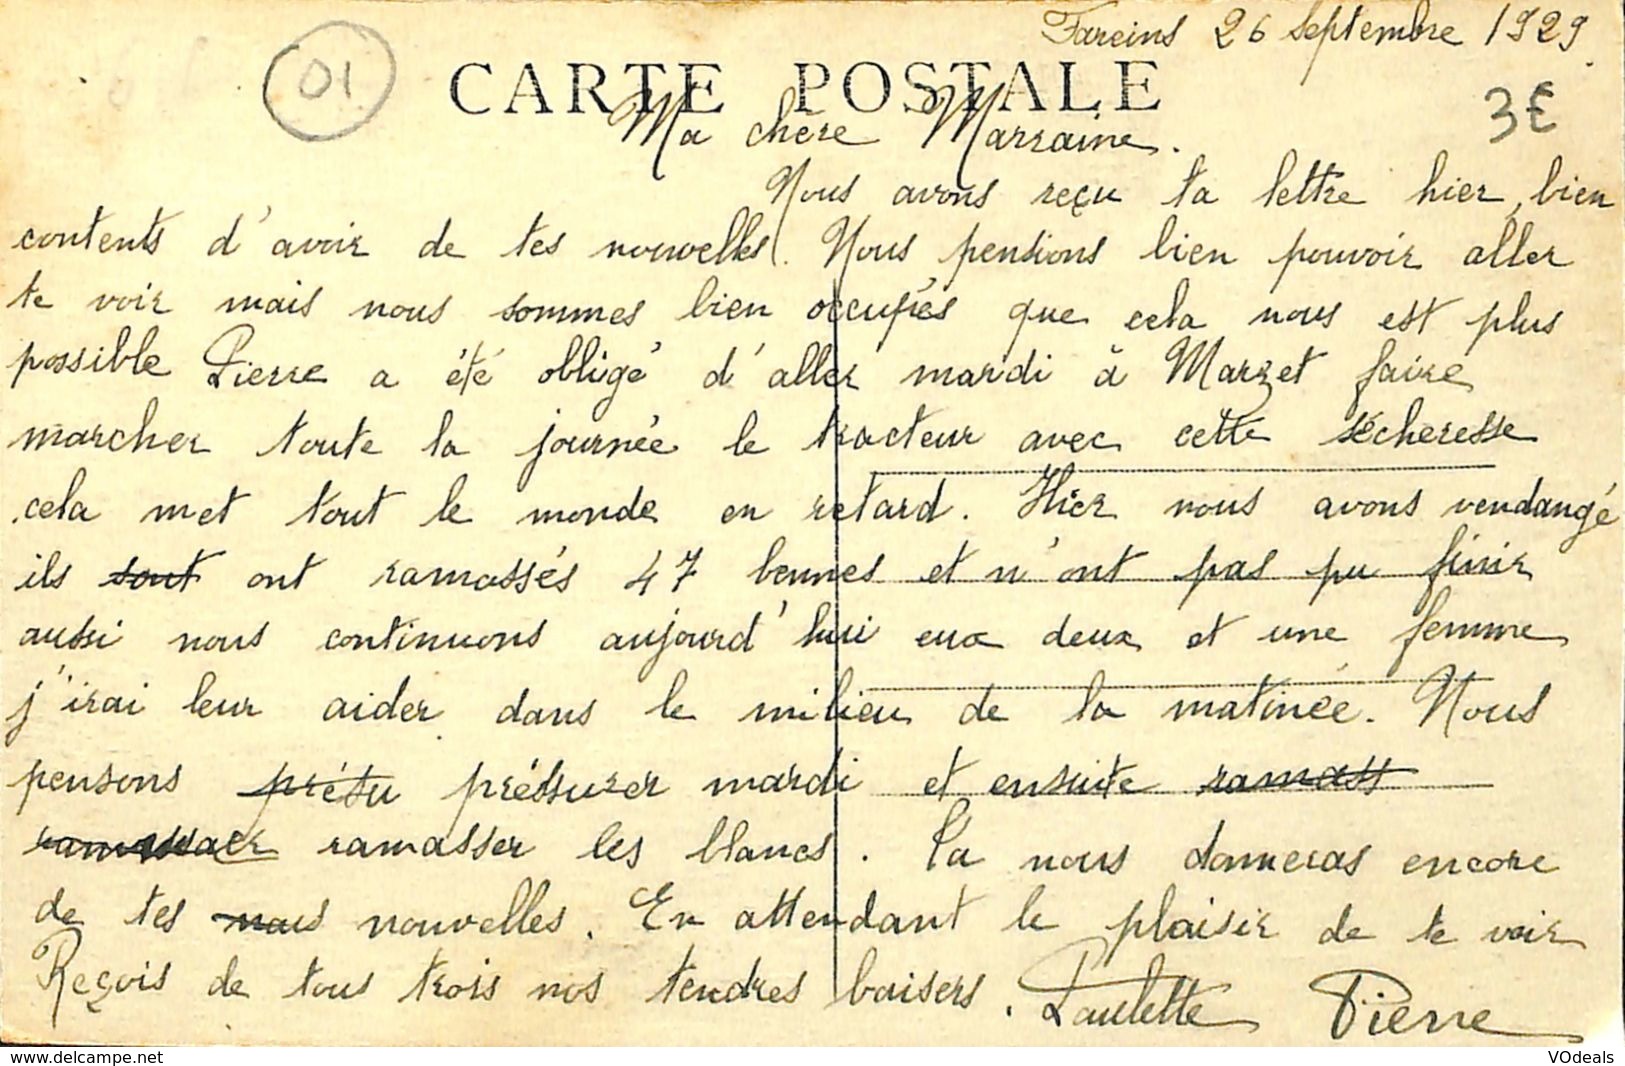 Fareins 26 Septembre 1929
01
CARTE POSTALE
3€
Ma chère Marraine.
Nous avons reçu ta lettre hier, bien
contents d'avoir de tes nouvelles. Nous pensions bien pouvoir aller
te voir mais nous sommes bien occupés que cela nous est plus
possible Pierre a été obligé d'aller mardi à Marzet faire
marcher toute la journée le tracteur avec cette sécheresse
cela met tout le monde en retard. Hier nous avons vendangé
ils sont ont ramassés 47 bennes et n'ont pas pu finir
aussi nous continuons aujourd'hui eux deux et une femme
j'irai leur aider dans le milieu de la matinée. Nous
pensons présu préssurer mardi et ensuite ramass
ramasser les blancs. Ta nous donneras encore
de tes nous nouvelles. En attendant le plaisir de te voir
Reçois de tous trois nos tendres baisers. Paulette Pierre
www.delcampe.net
VOdeals